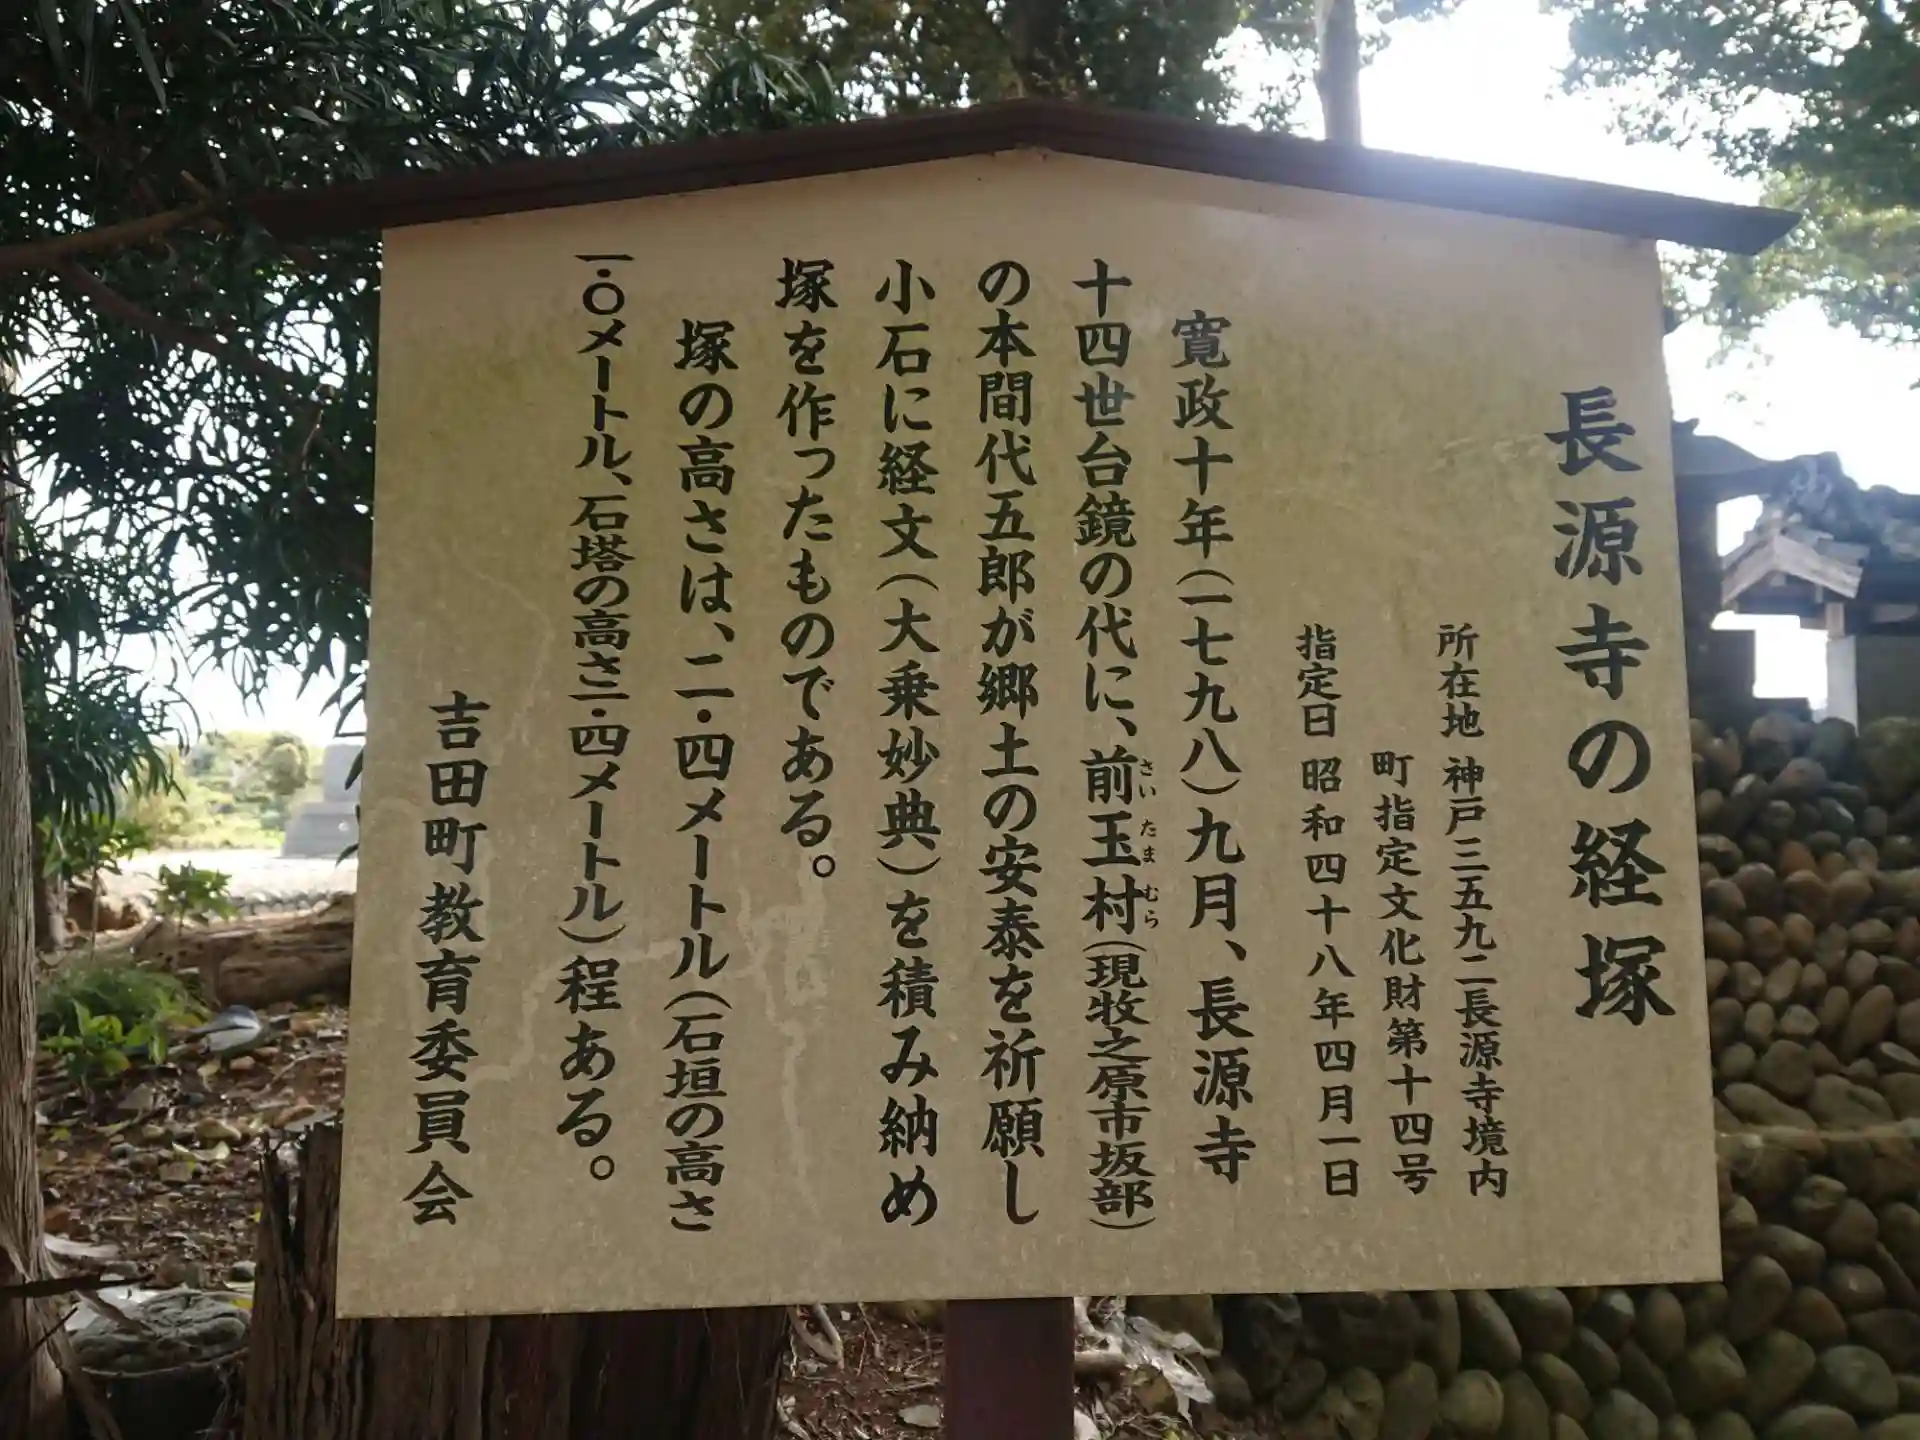 長源寺の経塚
所在地 神戸三五九二長源寺境内
町指定文化財第十四号
指定日 昭和四十八年四月一日
寛政十年(一七九八)九月、長源寺
十四世台鏡の代に、前玉村(現牧之原市坂部)
さいたまむら
の本間代五郎が郷土の安泰を祈願し
小石に経文(大乗妙典)を積み納め
塚を作ったものである。
塚の高さは、二・四メートル(石垣の高さ
一・〇メートル、石塔の高さ一・四メートル)程ある。
吉田町教育委員会